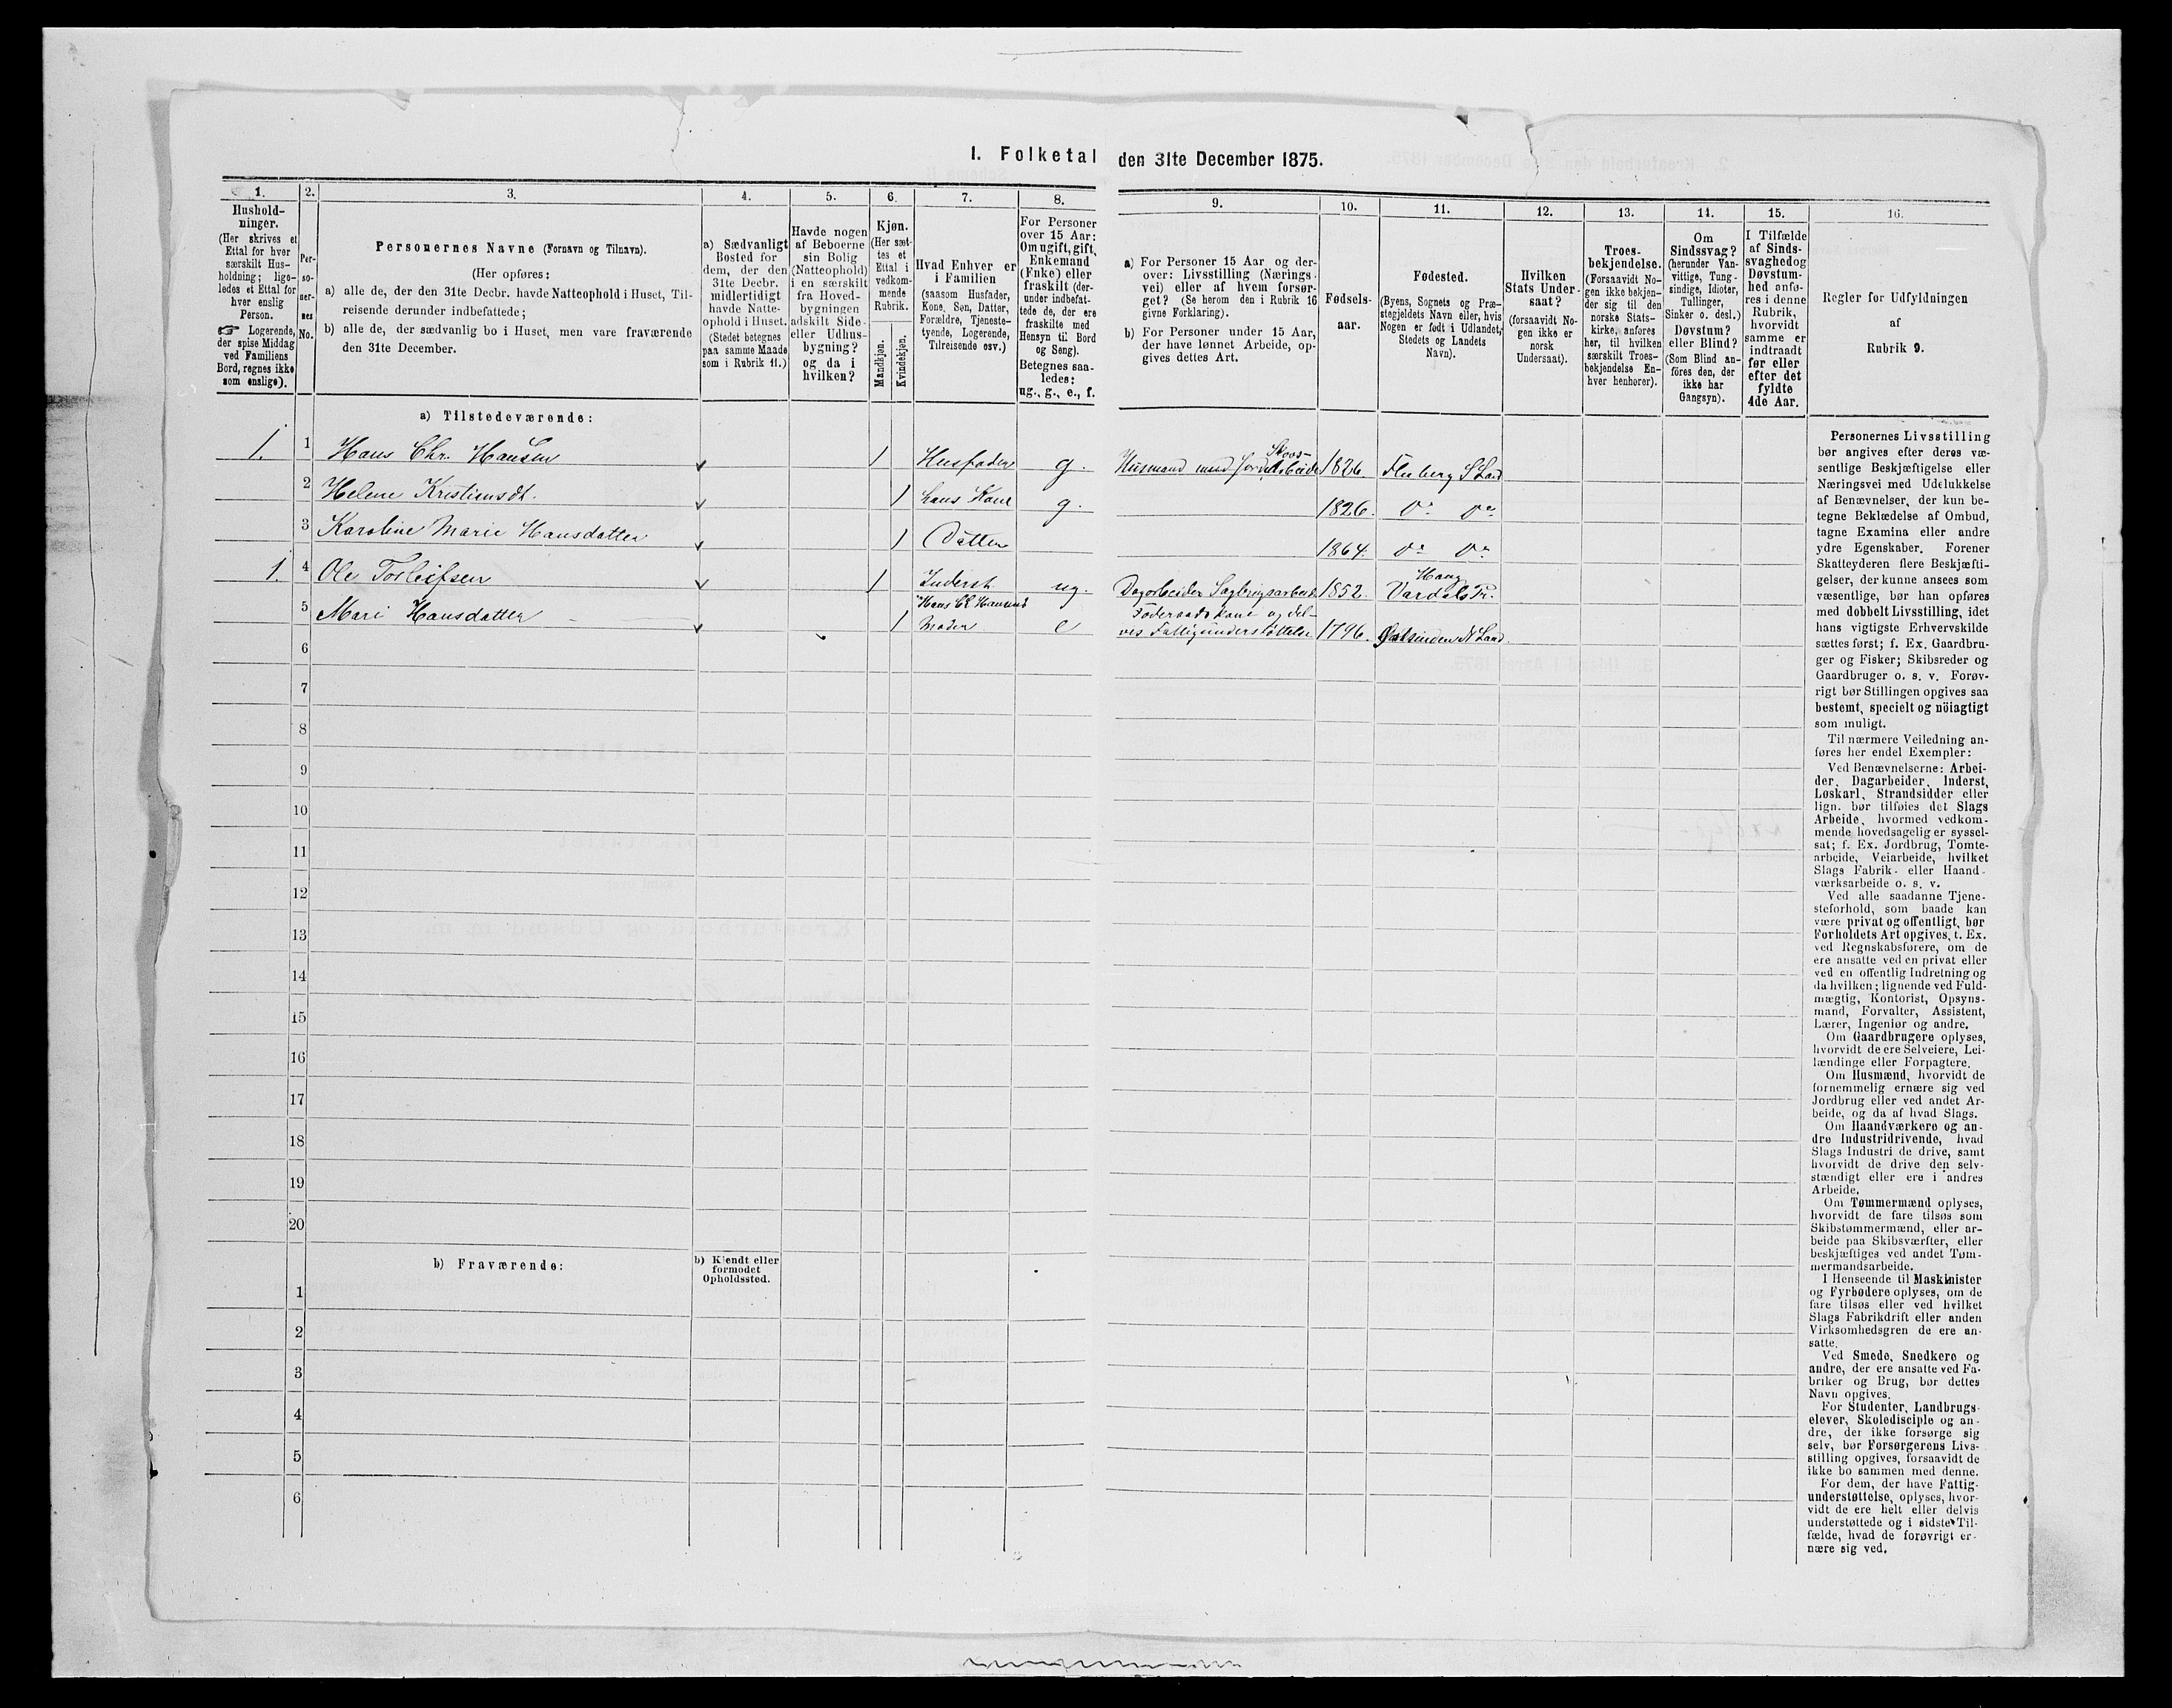 I. Folketal den 31te December 1875.
1.
Hushold-
ninger.
(Her skrives et
Ettal for hver
særskilt Hus-
holdning; lige-
ledes et Ettal for
hver enslig
Person.
☞ Logerende,
der spise Middag
ved Familiens
Bord, regnes ikke
som enslige).
2.
Per-
so-
ner-
nes
No.
3.
Personernes Navne (Fornavn og Tilnavn).
(Her opføres:
a) alle de, der den 31te Decbr. havde Natteophold i Huset, Til-
reisende derunder indbefattede;
b) alle de, der sædvanlig bo i Huset, men vare fraværende
den 31te December.
4.
a) Sædvanligt
Bosted for
dem, der den
31te Decbr.
midlertidigt
havde Natte-
ophold i Huset.
(Stedet betegnes
paa samme Maade
som i Rubrik 11.)
5.
Havde nogen
af Beboerne
sin Bolig
(Natteophold)
i en særskilt
fra Hoved-
bygningen
adskilt Side-
eller Udhus-
bygning?
og da i
hvilken?
6.
Kjøn.
(Her sæt-
tes et
Ettal i
vedkom-
mende
Rubrik.
Mandkjøn.
Kvindekjøn.
7.
Hvad Enhver er
i Familien
(saasom Husfader,
Kone, Søn, Datter,
Forældre, Tjeneste-
tyende, Logerende,
Tilreisende osv.)
8.
For Personer
over 15 Aar:
Om ugift, gift,
Enkemand
(Enke) eller
fraskilt (der-
under indbefat-
tede de, der ere
fraskilte med
Hensyn til Bord
og Seng).
Betegnes saa-
ledes:
ug., g., e., f.
9.
a) For Personer 15 Aar og der-
over: Livsstilling (Nærings-
vei) eller af hvem forsør-
get? (Se herom den i Rubrik 16
givne Forklaring).
b) For Personer under 15 Aar,
der have lønnet Arbeide, op-
gives dettes Art.
10.
Fødsels-
aar.
11.
Fødested.
(Byens, Sognets og Præ-
stegjeldets Navn eller, hvis
Nogen er født i Udlandet,
Stedets og Landets
Navn).
12.
Hvilken
Stats Under-
saat?
(forsaavidt No-
gen ikke er
norsk
Undersaat).
13.
Troes-
bekjendelse.
(Forsaavidt No-
gen ikke bekjen-
der sig til den
norske Stats-
kirke, anføres
her, til hvilken
særskilt Troes-
bekjendelse En-
hver henhører).
14.
Om
Sindssvag?
(herunder Van-
vittige, Tung-
sindige, Idioter,
Tullinger,
Sinker o. desl.)
Døvstum?
eller Blind?
(Som Blind an-
føres den, der
ikke har
Gangsyn).
15.
I Tilfælde
af Sinds-
svaghed og
Døvstum-
hed anfø-
res i denne
Rubrik,
hvorvidt
samme er
indtraadt
før eller
efter det
fyldte
4de Aar.
16.
Regler for Udfyldningen
af
Rubrik 9.
a) Tilstedeværende:
1. 1 Hans Chr. Hansen 1 Husfader g. Husmand med Jord Skovarbeide 1826. Fluberg S Land
2 Helene Kristiansdt. 1 hans Kone g. 1826. Do Do
3 Karoline Marie Hansdatter 1 Datter 1864. Do Do
1. 4 Ole Torleifsen 1 Inderst ug. Dagarbeider 1852. Vardals Pr.
5 Mari Hansdatter 1 Hans Ch Hansens
Moder e Føderaadskone og del-
vis Fattigunderstøttelse 1796. Østsinden N Land.
6
7
8
9
10
11
12
13
14
15
16
17
18
19
20
b) Fraværende:
b) Kjendt eller
formodet
Opholdssted.
1
2
3
4
5
6
Personernes Livsstilling
bør angives efter deres væ-
sentlige Beskjæftigelse eller
Næringsvei med Udelukkelse
af Benævnelser, der kun be-
tegne Beklædelse af Ombud,
tagne Examina eller andre
ydre Egenskaber. Forener
Skatteyderen flere Beskjæfti-
gelser, der kunne ansees som
væsentlige, bør han opføres
med dobbelt Livsstilling, idet
hans vigtigste Erhvervskilde
sættes først; f. Ex. Gaardbru-
ger og Fisker; Skibsreder og
Gaardbruger o. s. v. Forøv-
rigt bør Stillingen opgives saa
bestemt, specielt og nöiagtigt
som muligt.
Til nærmere Veiledning an-
føres her endel Exempler:
Ved Benævnelserne: Arbei-
der, Dagarbeider, Inderst,
Løskarl, Strandsidder eller
lign. bør tilføies det Slags
Arbeide, hvormed vedkom-
mende hovedsagelig er syssel-
sat; f. Ex. Jordbrug, Tomte-
arbeide, Veiarbeide, hvilket
Slags Fabrik- eller Haand-
værksarbeide o. s. v.
Ved alle saadanne Tjene-
steforhold, som baade kan
være privat og offentligt, bør
Forholdets Art opgives, t. Ex.
ved Regnskabsførere, om de
ere ansatte ved en privat eller
ved en offentlig Indretning og
da hvilken; lignende ved Fuld-
mægtig, Kontorist, Opsyns-
mand, Forvalter, Assistent,
Lærer, Ingeniør og andre.
Om Gaardbrugere oplyses,
hvorvidt de ere Selveiere, Lei-
lændinge eller Forpagtere.
Om Husmænd, hvorvidt de
fornemmelig ernære sig ved
Jordbrug eller ved andet Ar-
beide, og da af hvad Slags.
Om Haandværkere og an-
dre Industridrivende, hvad
Slags Industri de drive, samt
hvorvidt de drive den selv-
stændigt eller ere i andres
Arbeide.
Om Tømmermænd oplyses,
hvorvidt de fare tilsøs som
Skibstømmermænd, eller ar-
beide paa Skibsværfter, eller
beskjæftiges ved andet Tøm-
mermandsarbeide.
I Henseende til Maskinister
og Fyrbødere oplyses, om de
fare tilsøs eller ved hvilket
Slags Fabrikdrift eller anden
Virksomhedsgren de ere an-
satte.
Ved Smede, Snedkere og
andre, der ere ansatte ved Fa-
briker og Brug, bør dettes
Navn opgives.
For Studenter, Landbrugs-
elever, Skoledisciple og an-
dre, der ikke forsørge sig
selv, bør Forsørgerens Livs-
stilling opgives, forsaavidt de
ikke bo sammen med denne.
For dem, der have Fattig-
understøttelse, oplyses, hvor-
vidt de ere helt eller delvis
understøttede og i sidste Til-
fælde, hvad de forøvrigt er-
nære sig ved.